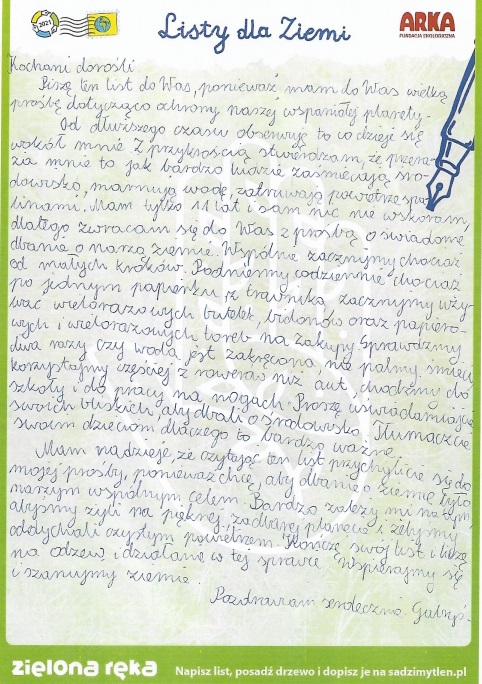 2021
Listy dla Ziemi
ARKA
FUNDACJA EKOLOGICZNA
Kochani dorośli
Piszę ten list do Was, ponieważ mam do Was wielką
prośbę dotyczącą ochrony naszej wspaniałej planety.
Od dłuższego czasu obserwuję to co dzieje się
wokół mnie. Z przykrością stwierdzam, że przera-
ża mnie to jak bardzo ludzie zaśmiecają śro-
dowisko, marnują wodę, zatruwają powietrze spa-
linami. Mam tylko 11 lat i sam nic nie wskóram,
dlatego zwracam się do Was z prośbą o świadome
dbanie o naszą ziemię. Wspólnie zacznijmy chociaż
od małych kroków. Podnieśmy codziennie chociaż
po jednym papierku z trawnika, zacznijmy uży-
wać wielorazowych butelek, bidonów oraz papiero-
wych i wielorazowych toreb na zakupy. Sprawdzimy
dwa razy czy woda jest zakręcona, nie palmy śmieci,
korzystajmy częściej z rowerów niż aut, chodźmy do
szkoły i do pracy na nogach. Proszę uświadamiajcie
swoich bliskich, aby dbali o środowisko. Tłumaczcie
swoim dzieciom dlaczego to bardzo ważne.
Mam nadzieję, że czytając ten list przychylicie się do
mojej prośby, ponieważ chcę, aby dbanie o ziemię było
naszym wspólnym celem. Bardzo zależy mi na tym
abyśmy żyli na pięknej zadbanej planecie i żebyśmy
oddychali czystym powietrzem. Kończę swój list i liczę
na odzew i działanie w tej sprawie. Wspierajmy się
i szanujmy ziemię.
Pozdrawiam serdecznie
zielona ręka
Napisz list, posadź drzewo i dopisz je na sadzimytlen.pl